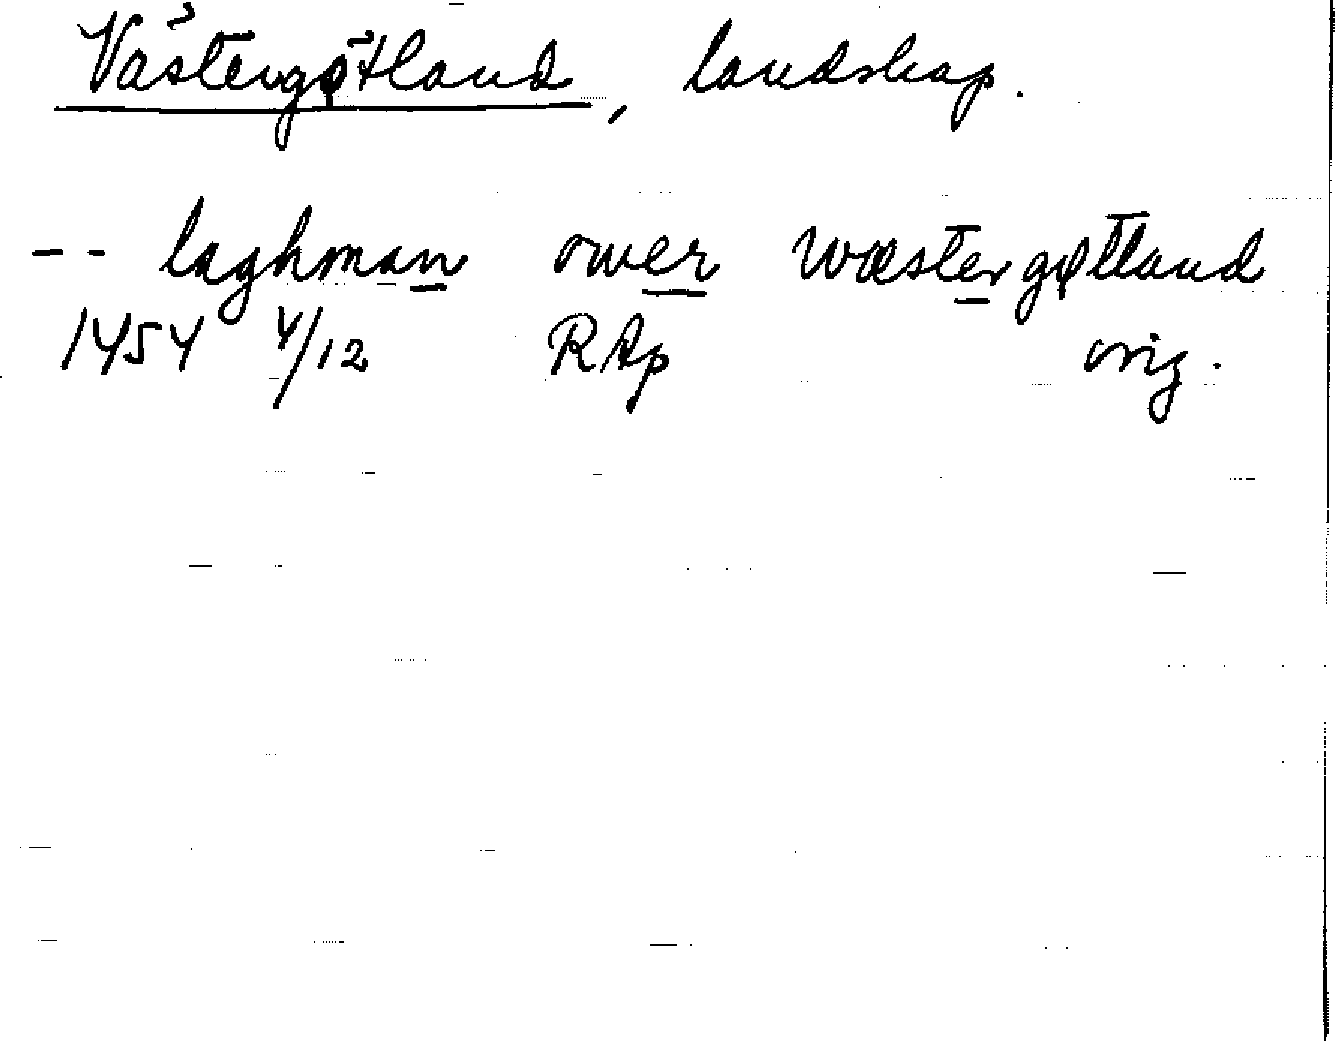 Västergötland, landskap.
-- laghman ower wæstergøtland
1454 4/12 RAp orig.